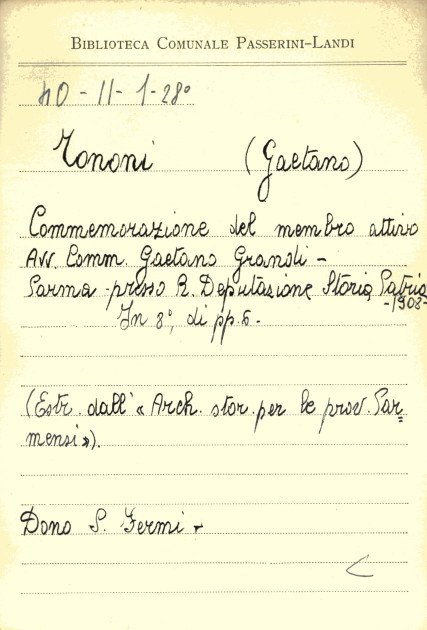 BIBLIOTECA COMUNALE PASSERINI-LANDI
40-II-1-28º
Tononi (Gaetano)
Commemorazione del membro attivo
Avv. Comm. Gaetano Grandi -
Parma - presso R. Deputazione Storia Patria
-1908-
In 8º, di pp. 6.-
(Estr. dall'« Arch. stor. per le prov. Par=
mensi»).
Dono S. Fermi -